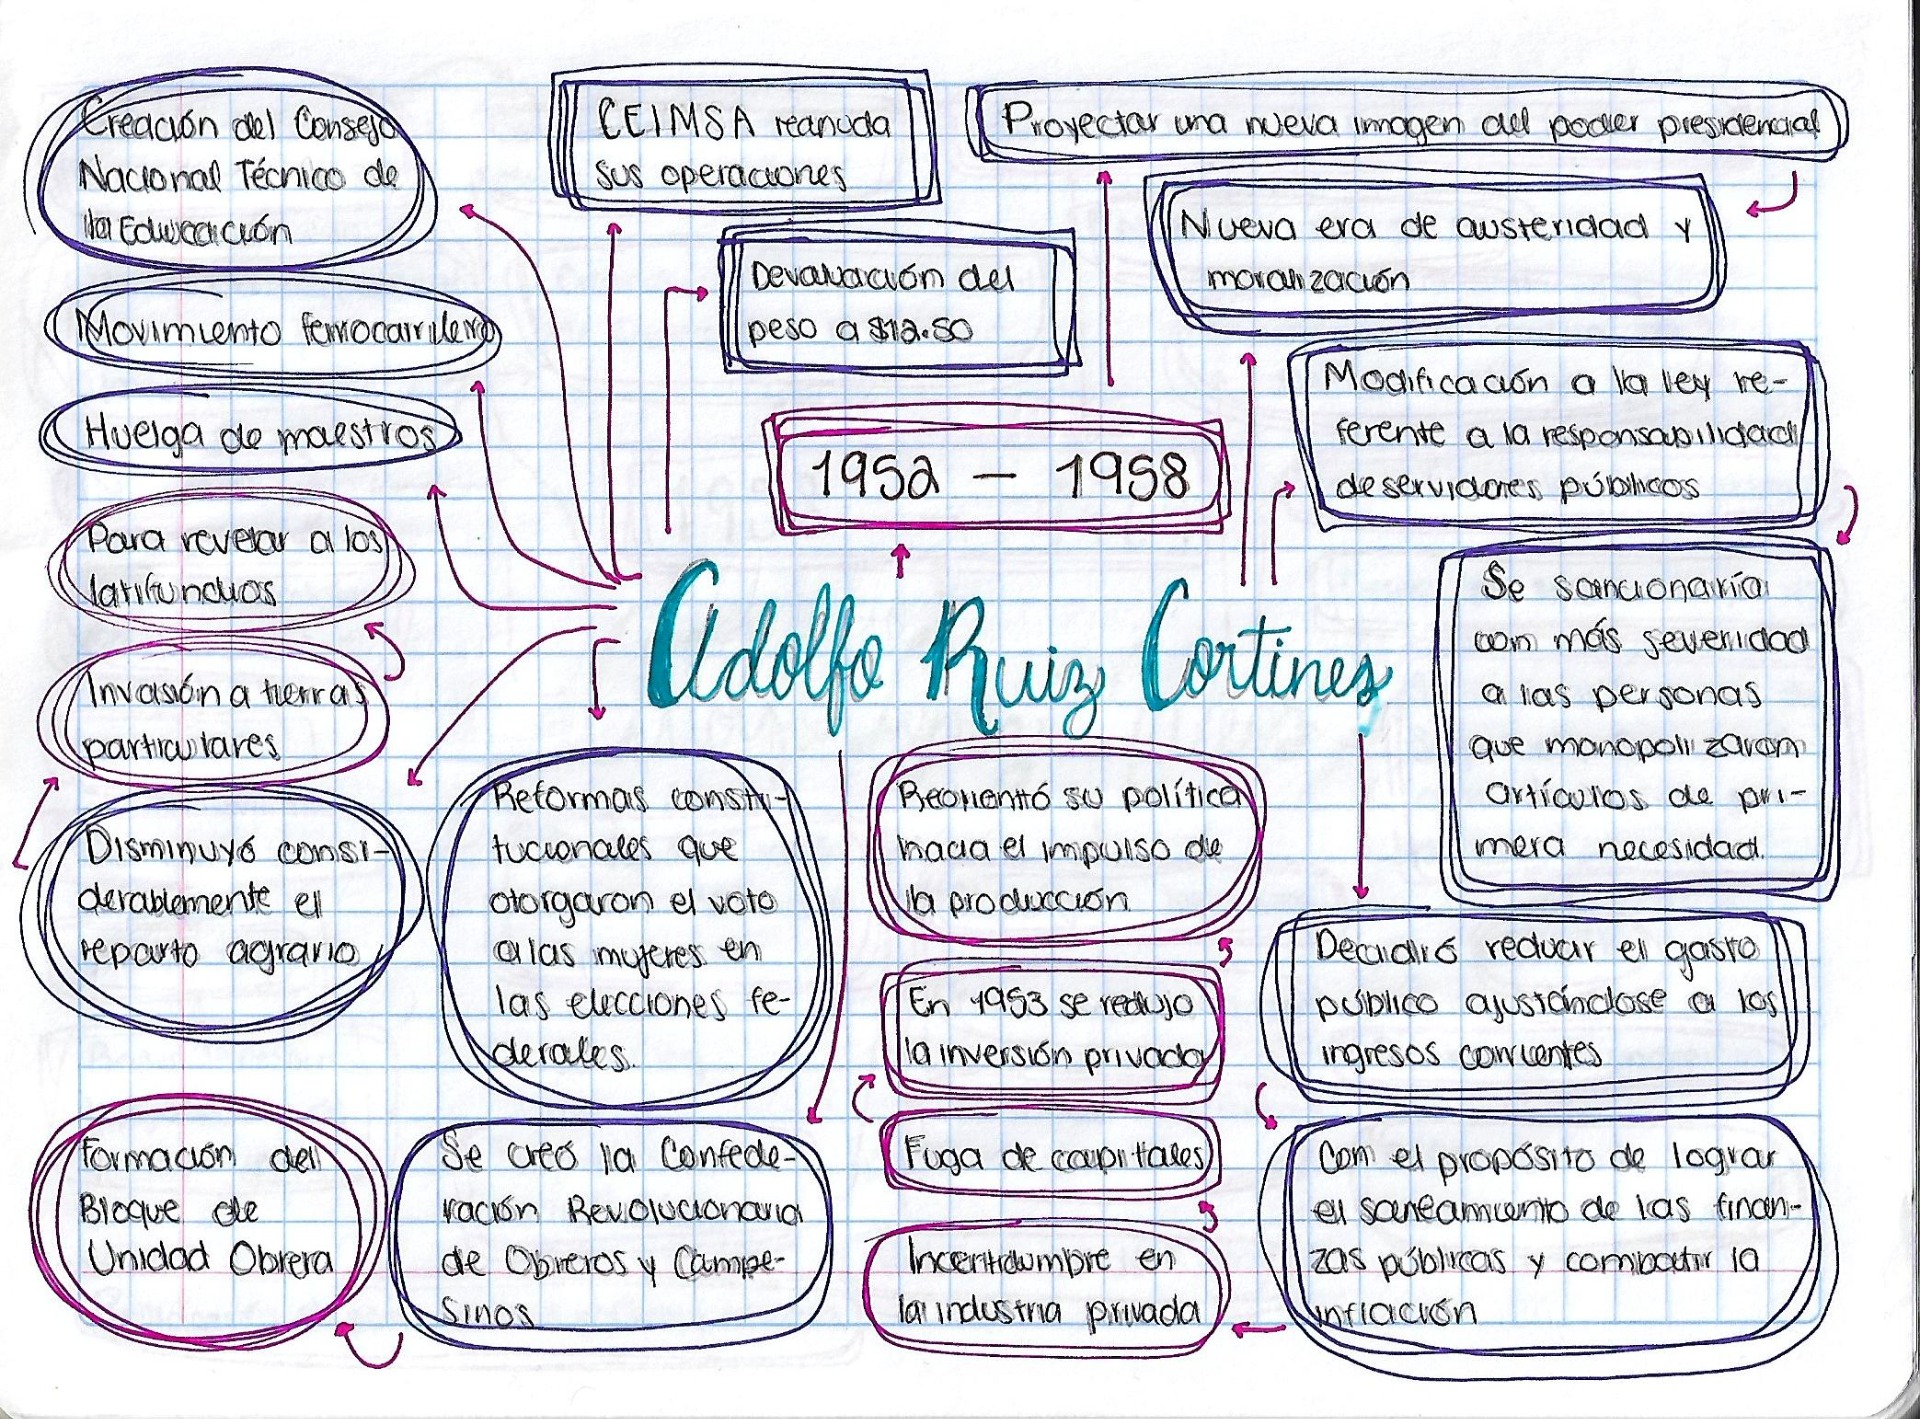 Creación del Consejo
Nacional Técnico de
la Educación
CEIMSA reanuda
sus operaciones
Proyectar una nueva imagen del poder presidencial
Nueva era de austeridad y
moralización
Devaluación del
peso a $12.50
Movimiento ferrocarrilero
Huelga de maestros
1952 - 1958
Modificación a la ley re-
ferente a la responsabilidad
de servidores públicos
Para revelar a los
latifundios
Se sancionaría
con más severidad
a las personas
que monopolizaran
artículos de pri-
mera necesidad.
Adolfo Ruiz Cortines
Invasión a tierras
particulares
Disminuyó consi-
derablemente el
reparto agrario
Reformas consti-
tucionales que
otorgaron el voto
a las mujeres en
las elecciones fe-
derales.
Reorientó su política
hacia el impulso de
la producción
En 1953 se redujo
la inversión privada
Fuga de capitales
Incertidumbre en
la industria privada
Decidió reducir el gasto
público ajustándose a los
ingresos corrientes
Con el propósito de lograr
el saneamiento de las finan-
zas públicas y combatir la
inflación
Formación del
Bloque de
Unidad Obrera
Se creó la Confede-
ración Revolucionaria
de Obreros y Campe-
sinos